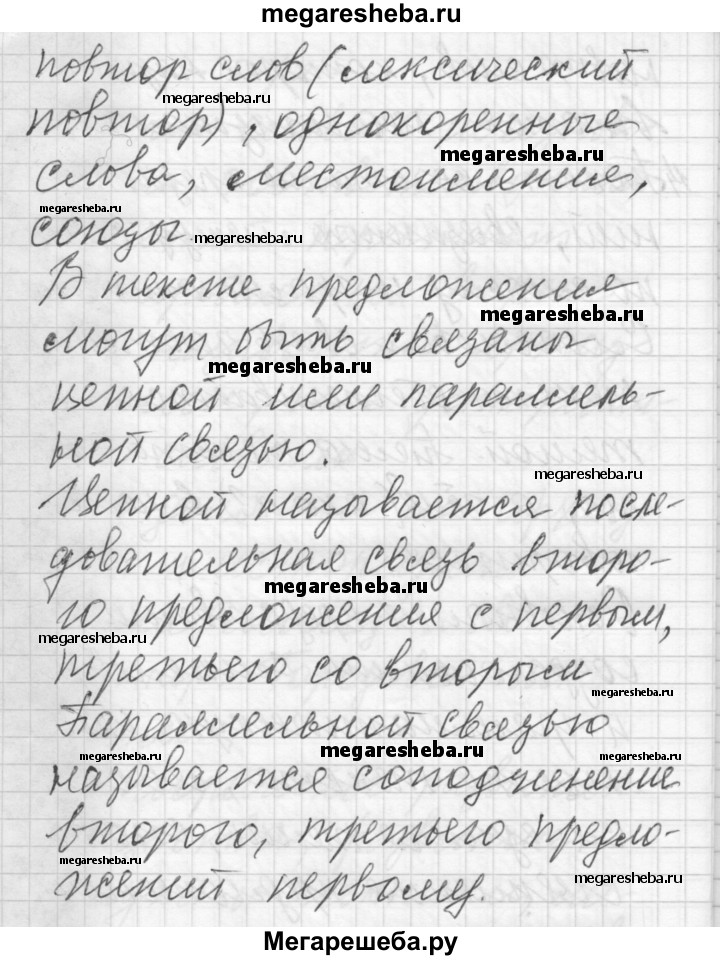 megaresheba.ru
повтор слов (лексический
megaresheba.ru
повтор), однокоренные
megaresheba.ru
слова, местоимения,
megaresheba.ru
союзы
megaresheba.ru
В тексте предложения
megaresheba.ru
могут быть связаны
megaresheba.ru
цепной или параллель-
ной связью.
megaresheba.ru
Цепной называется после-
довательная связь второ-
megaresheba.ru
го предложения с первым,
megaresheba.ru
третьего со вторым
megaresheba.ru
Параллельной связью
megaresheba.ru
megaresheba.ru
megaresheba.ru
называется соподчинение
второго, третьего предло-
megaresheba.ru
жений первому.
megaresheba.ru
Мегарешеба.ру